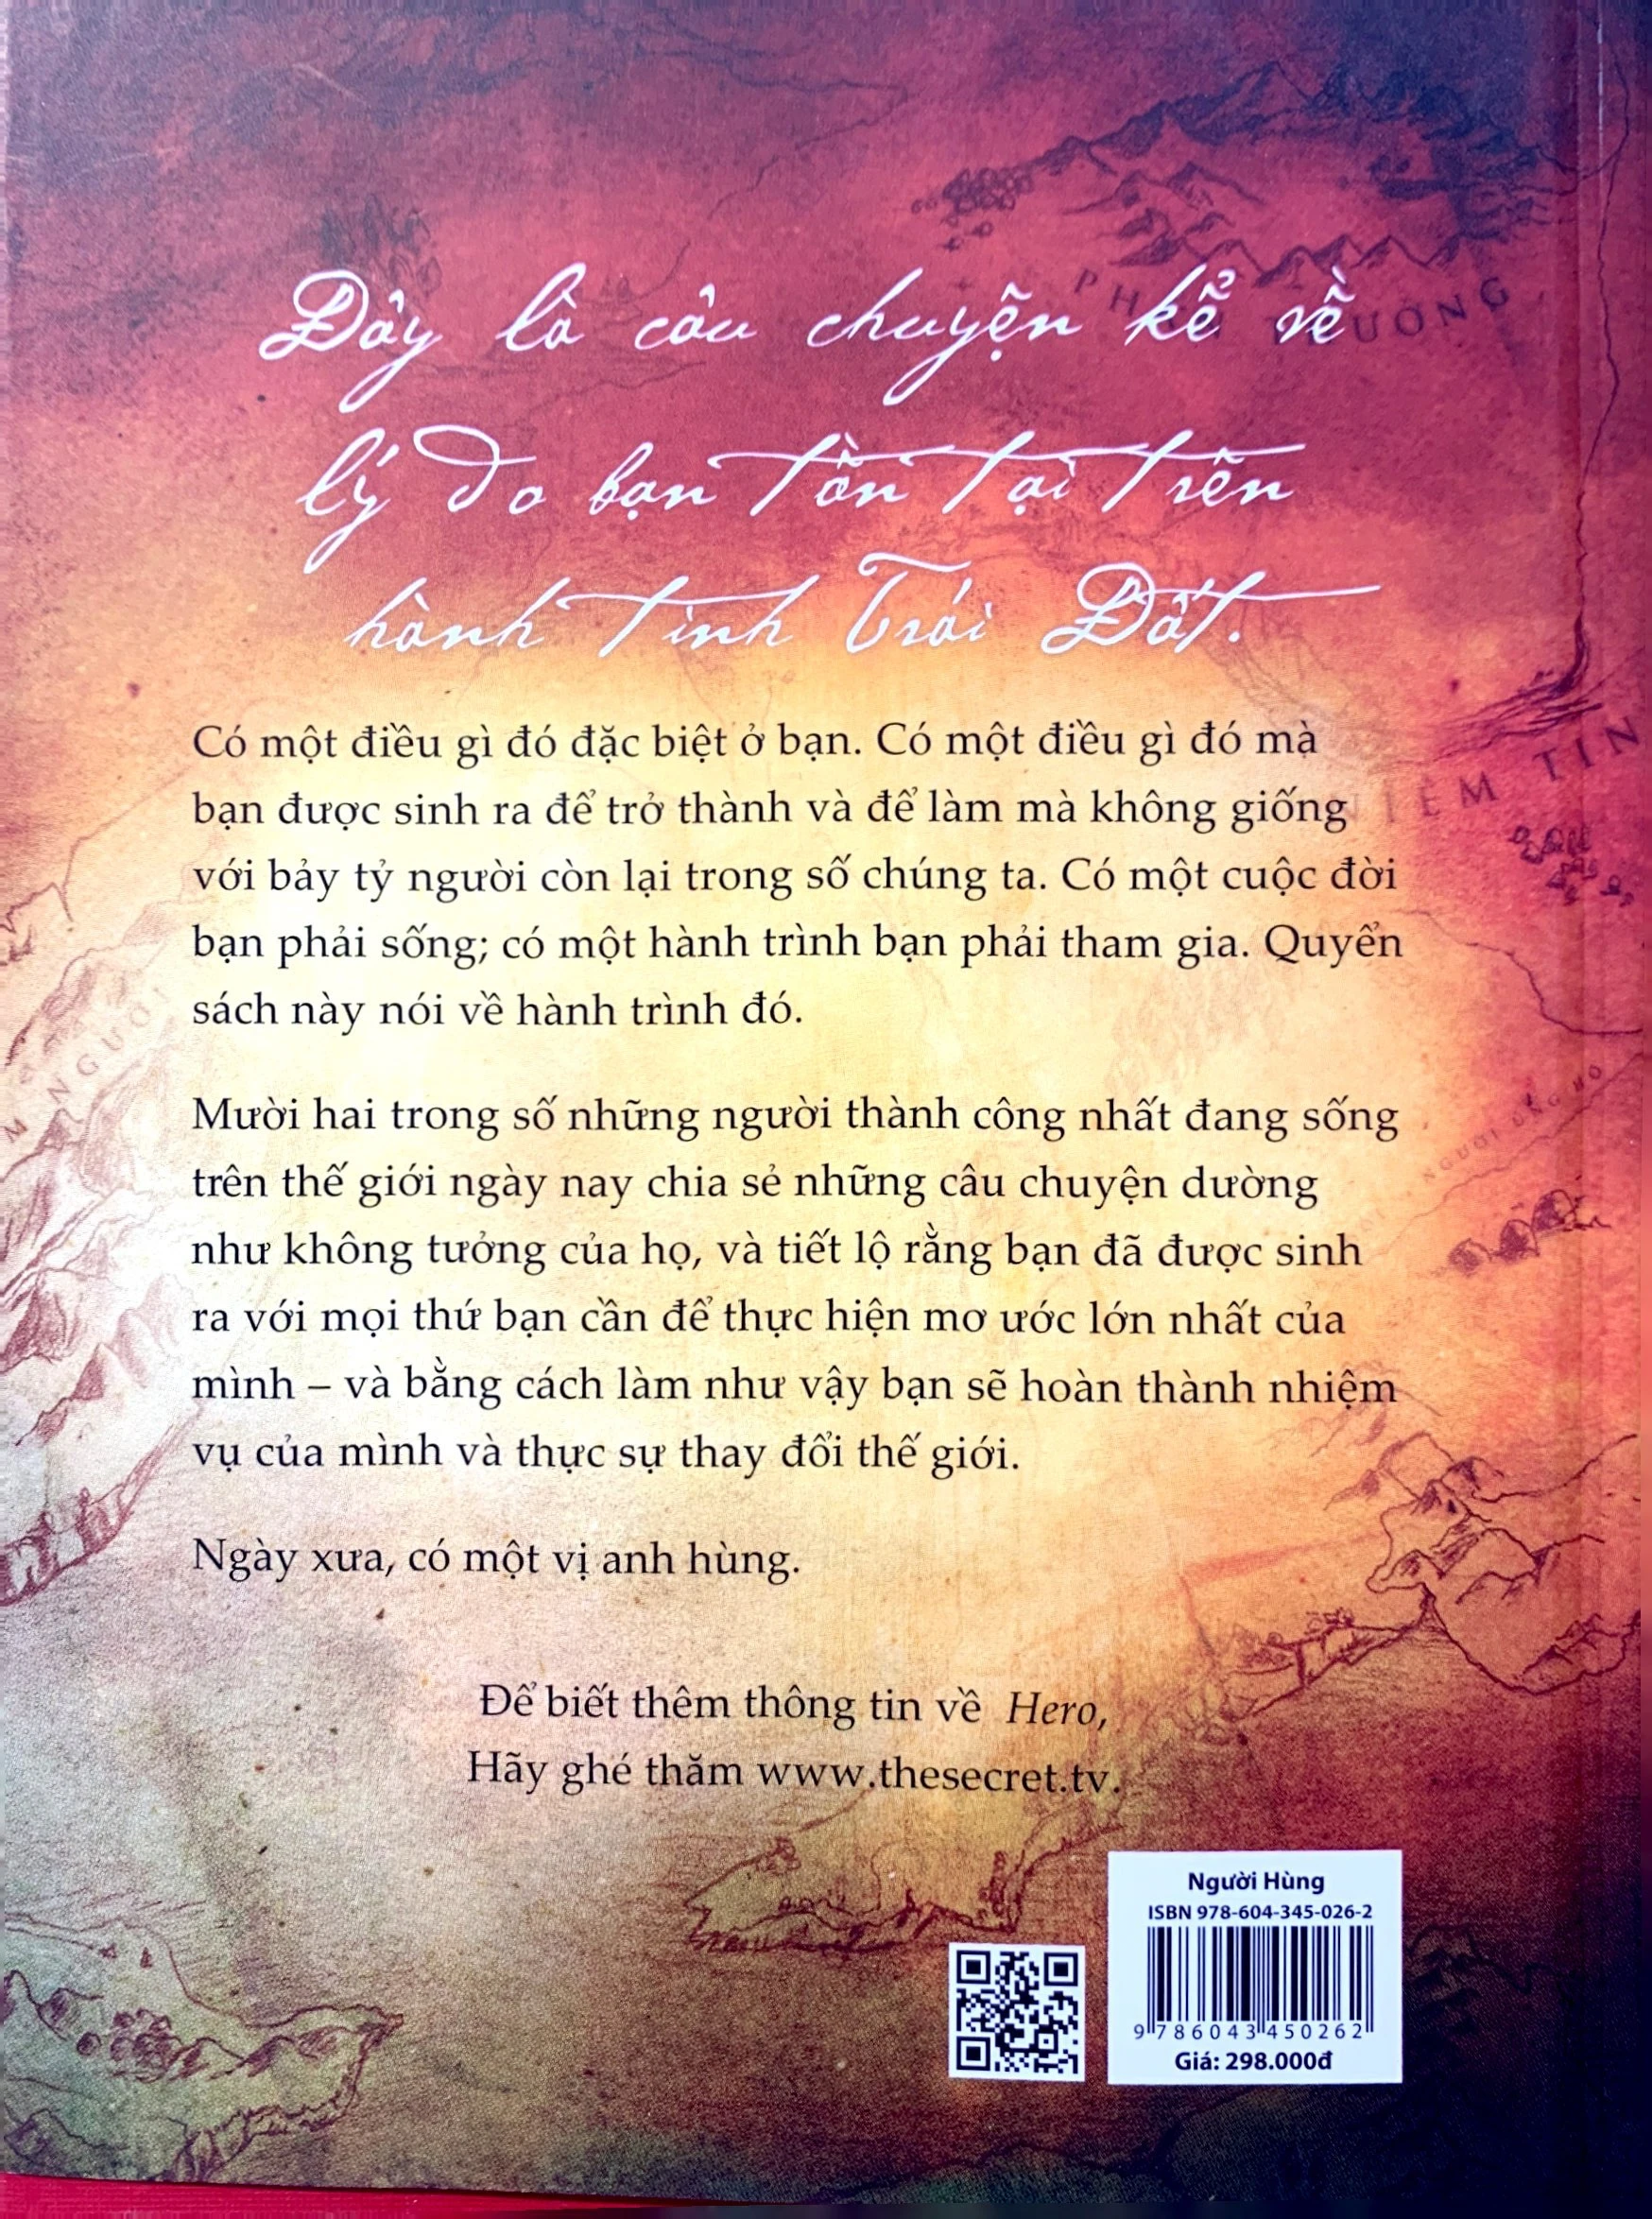 Đây là câu chuyện kể về
lý do bạn tồn tại trên
hành tinh Trái Đất.
Có một điều gì đó đặc biệt ở bạn. Có một điều gì đó mà
bạn được sinh ra để trở thành và để làm mà không giống
với bảy tỷ người còn lại trong số chúng ta. Có một cuộc đời
bạn phải sống; có một hành trình bạn phải tham gia. Quyển
sách này nói về hành trình đó.
Mười hai trong số những người thành công nhất đang sống
trên thế giới ngày nay chia sẻ những câu chuyện dường
như không tưởng của họ, và tiết lộ rằng bạn đã được sinh
ra với mọi thứ bạn cần để thực hiện mơ ước lớn nhất của
mình – và bằng cách làm như vậy bạn sẽ hoàn thành nhiệm
vụ của mình và thực sự thay đổi thế giới.
Ngày xưa, có một vị anh hùng.
Để biết thêm thông tin về Hero,
Hãy ghé thăm www.thesecret.tv.
Người Hùng
ISBN 978-604-345-026-2
9 786043 450262
Giá: 298.000đ